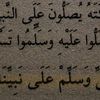 يُصَلُّونَ عَلَى النَّبِ
صَلُّوا عَلَيْهِ وَسَلِّمُوا تَسْ
وَسَلِّمْ عَلَى نَبِيِّنَا